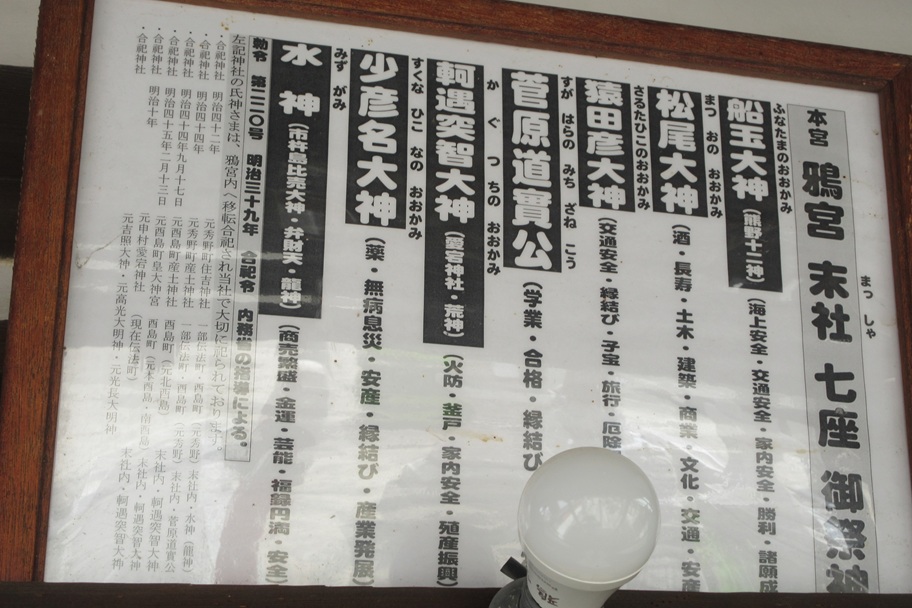 本宮 鴉宮 末社 七座 御祭神
まっしゃ
ふなたまのおおかみ
船玉大神(熊野十二神)(海上安全・交通安全・家内安全・勝利・諸願成
まつ おの おおかみ
松尾大神(酒・長寿・土木・建築・商業・文化・交通・安産
さるたひこのおおかみ
猿田彦大神(交通安全・縁結び・子宝・旅行・厄除
すが はらの みち ざね こう
菅原道實公(学業・合格・縁結び
か ぐ つちの おおかみ
軻遇突智大神(愛宕神社・荒神)(火防・釜戸・家内安全・殖産振興)
すくな ひこ なの おおかみ
少彦名大神(薬・無病息災・安産・縁結び・産業発展)
みず がみ
水神(市杵島比売大神・弁財天・龍神)(商売繁盛・金運・芸能・福録円満・安全)
勅令 第二二〇号 明治三十九年 合祀令 内務省の指導による。
左記神社の氏神さまは、鴉宮内へ移転合祀され当社で大切に祀られております。
・合祀神社 明治四十二年 元秀野町住吉神社 一部伝法町・酉島町(元秀野)末社内・水神(龍神)
・合祀神社 明治四十四年 元秀野町産土神社 一部伝法町・酉島町(元秀野)末社内・菅原道實公
・合祀神社 明治四十四年九月十七日 元酉島町産土神社 酉島町(元北酉島) 末社内・軻遇突智大神
・合祀神社 明治四十五年二月十三日 元酉島町皇大神宮 酉島町(元本酉島・南酉島) 末社内・軻遇突智大神
・合祀神社 明治十年 元申村愛宕神社(現在伝法町) 末社内・軻遇突智大神
元吉照大神・元高光大明神・元光長大明神